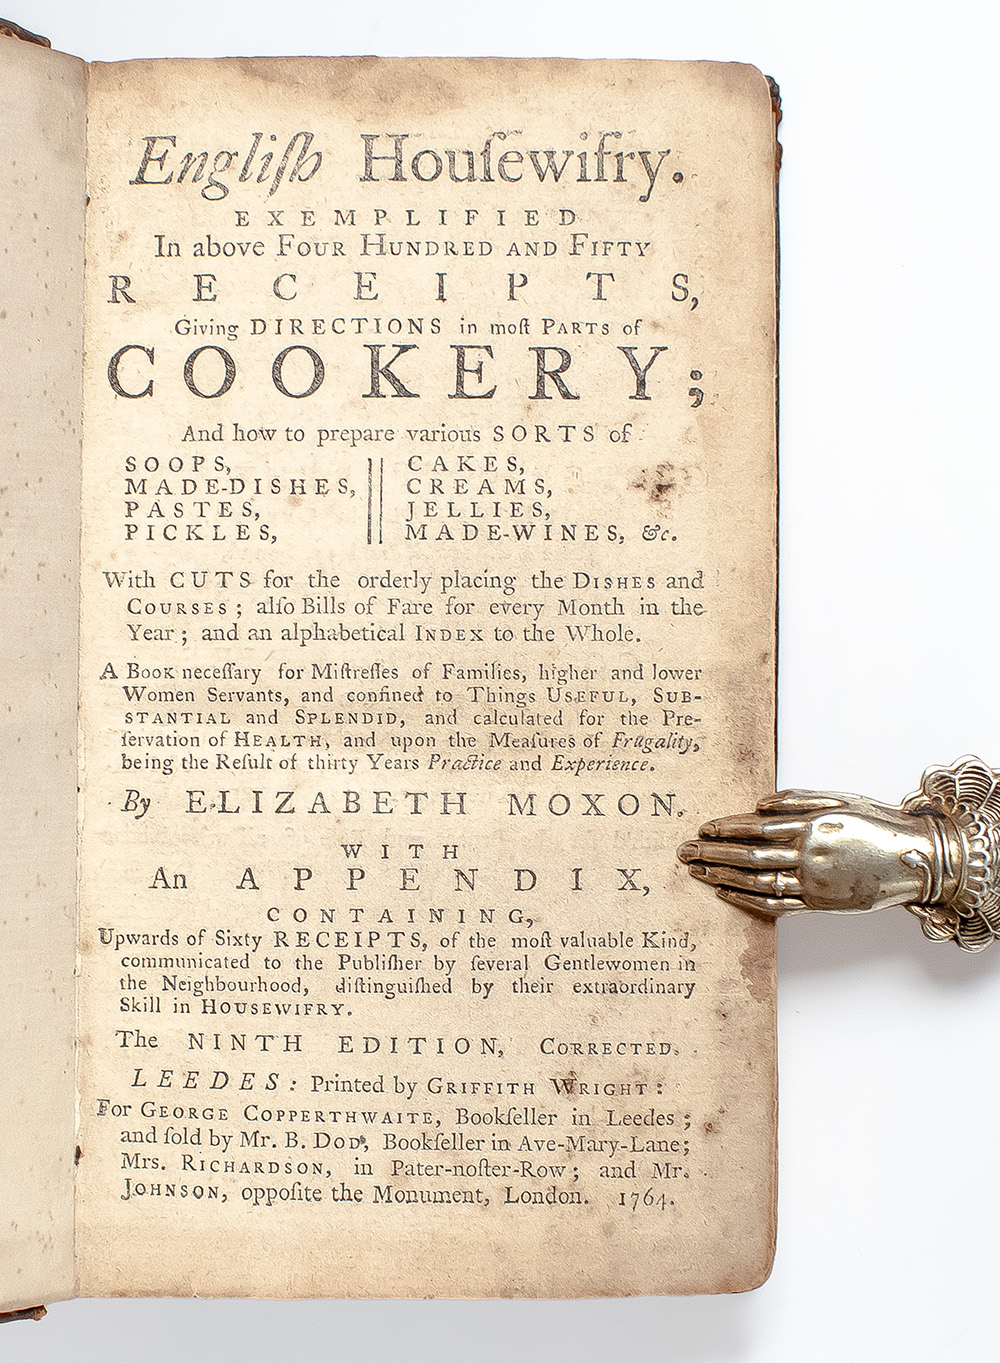 Engliſh Houſewifry.
EXEMPLIFIED
In above FOUR HUNDRED AND FIFTY
RECEIPTS,
Giving DIRECTIONS in moſt PARTS of
COOKERY;
And how to prepare various SORTS of
SOOPS,
MADE-DISHES,
PASTES,
PICKLES,
CAKES,
CREAMS,
JELLIES,
MADE-WINES, &c.
With CUTS for the orderly placing the DISHES and
COURSES; alſo Bills of Fare for every Month in the
Year; and an alphabetical INDEX to the Whole.
A BOOK neceſſary for Miſtreſſes of Families, higher and lower
Women Servants, and confined to Things USEFUL, SUB-
STANTIAL and SPLENDID, and calculated for the Pre-
ſervation of HEALTH, and upon the Meaſures of Frugality,
being the Reſult of thirty Years Practice and Experience.
By ELIZABETH MOXON.
WITH
An APPENDIX,
CONTAINING,
Upwards of Sixty RECEIPTS, of the moſt valuable Kind,
communicated to the Publiſher by ſeveral Gentlewomen in
the Neighbourhood, diſtinguiſhed by their extraordinary
Skill in HOUSEWIFRY.
The NINTH EDITION, CORRECTED.
LEEDES: Printed by GRIFFITH WRIGHT:
For GEORGE COPPERTHWAITE, Bookſeller in Leedes;
and ſold by Mr. B. DOD, Bookſeller in Ave-Mary-Lane;
Mrs. RICHARDSON, in Pater-noſter-Row; and Mr.
JOHNSON, oppoſite the Monument, London. 1764.